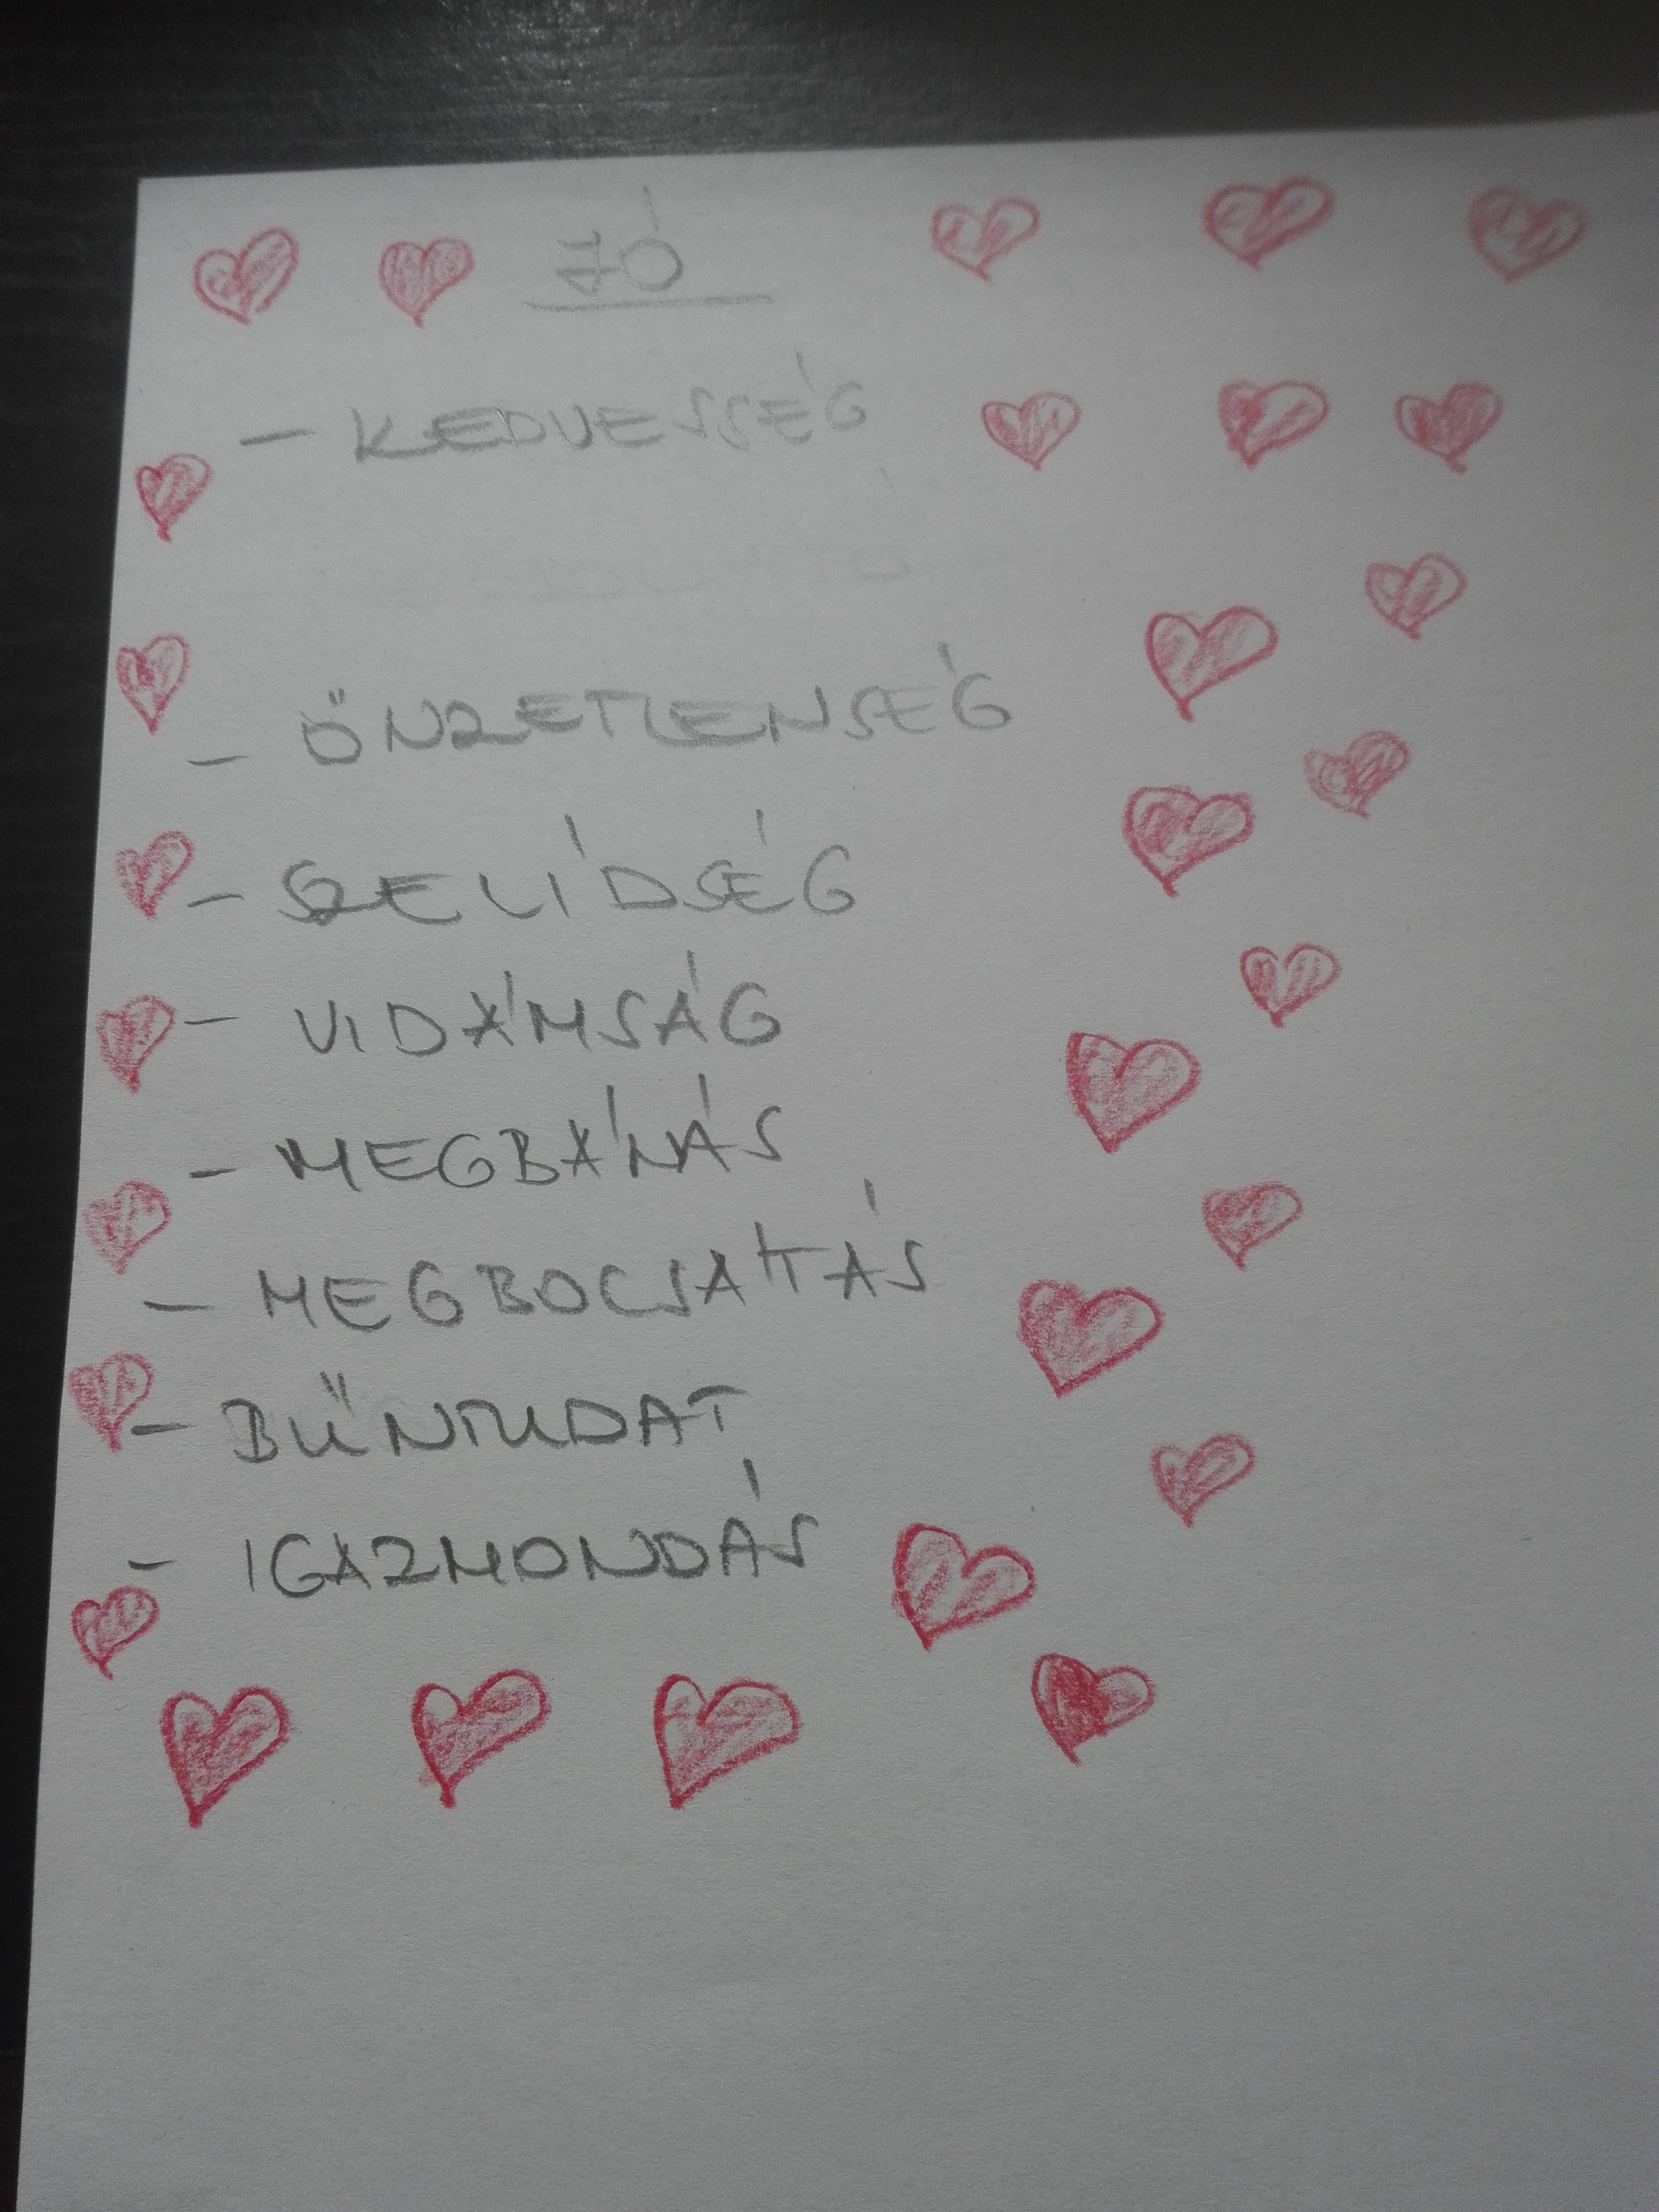 JÓ
- KEDVESSÉG
- ÖNZETLENSÉG
- SZELÍDSÉG
- VIDÁMSÁG
- MEGBÁNÁS
- MEGBOCSÁTÁS
- BŰNTUDAT
- IGAZMONDÁS